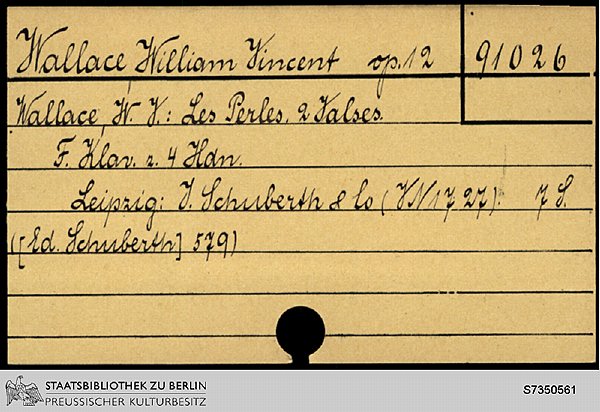 Wallace William Vincent op. 12 91026
Wallace, W. V.: Les Perles. 2 Valses.
F. Klav. z. 4 Hdn.
Leipzig: J. Schuberth & Co (VN 1727). 7 S.
([Ed. Schuberth] 579)
STAATSBIBLIOTHEK ZU BERLIN
PREUSSISCHER KULTURBESITZ
S7350561